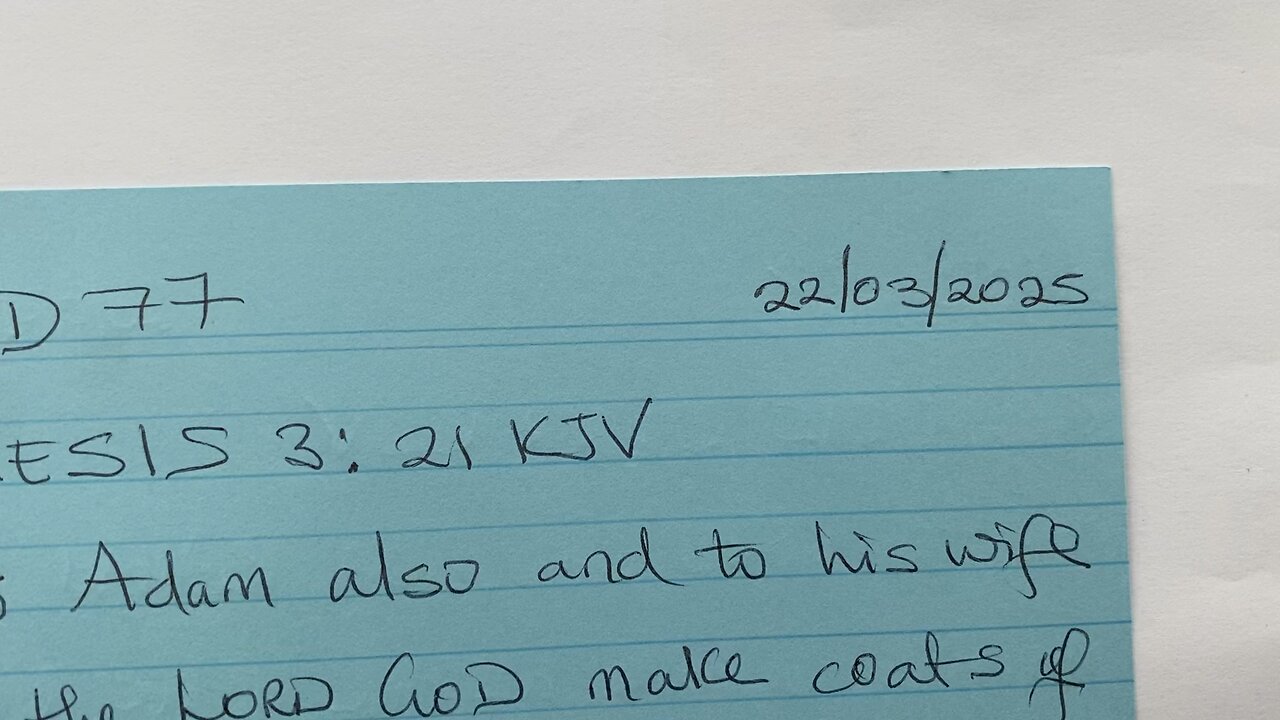 D 77 22/03/2025
ESIS 3:21 KJV
Adam also and to his wife
the LORD GOD make coats of